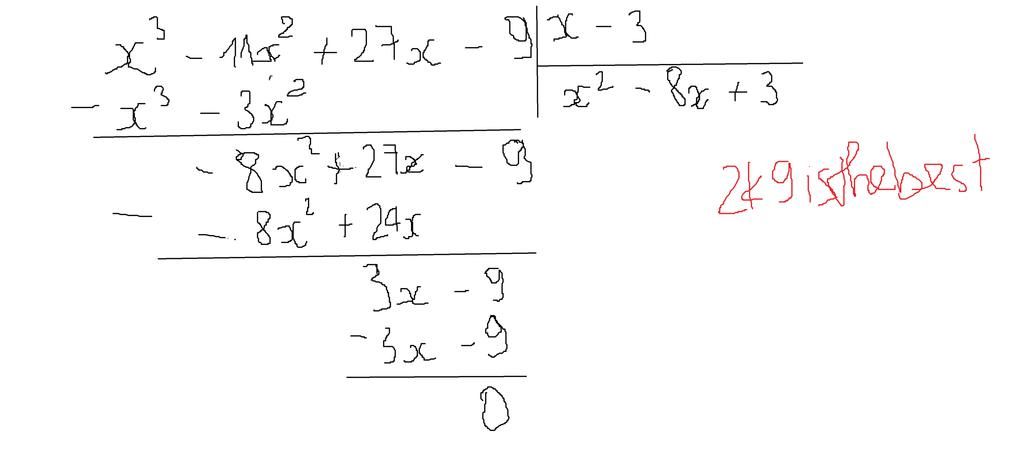 x³ - 11x² + 27x - 9 | x - 3
- x³ - 3x² | x² - 8x + 3
- 8x² + 27x - 9
- - 8x² + 24x
3x - 9
- 3x - 9
0
2k9isthebest